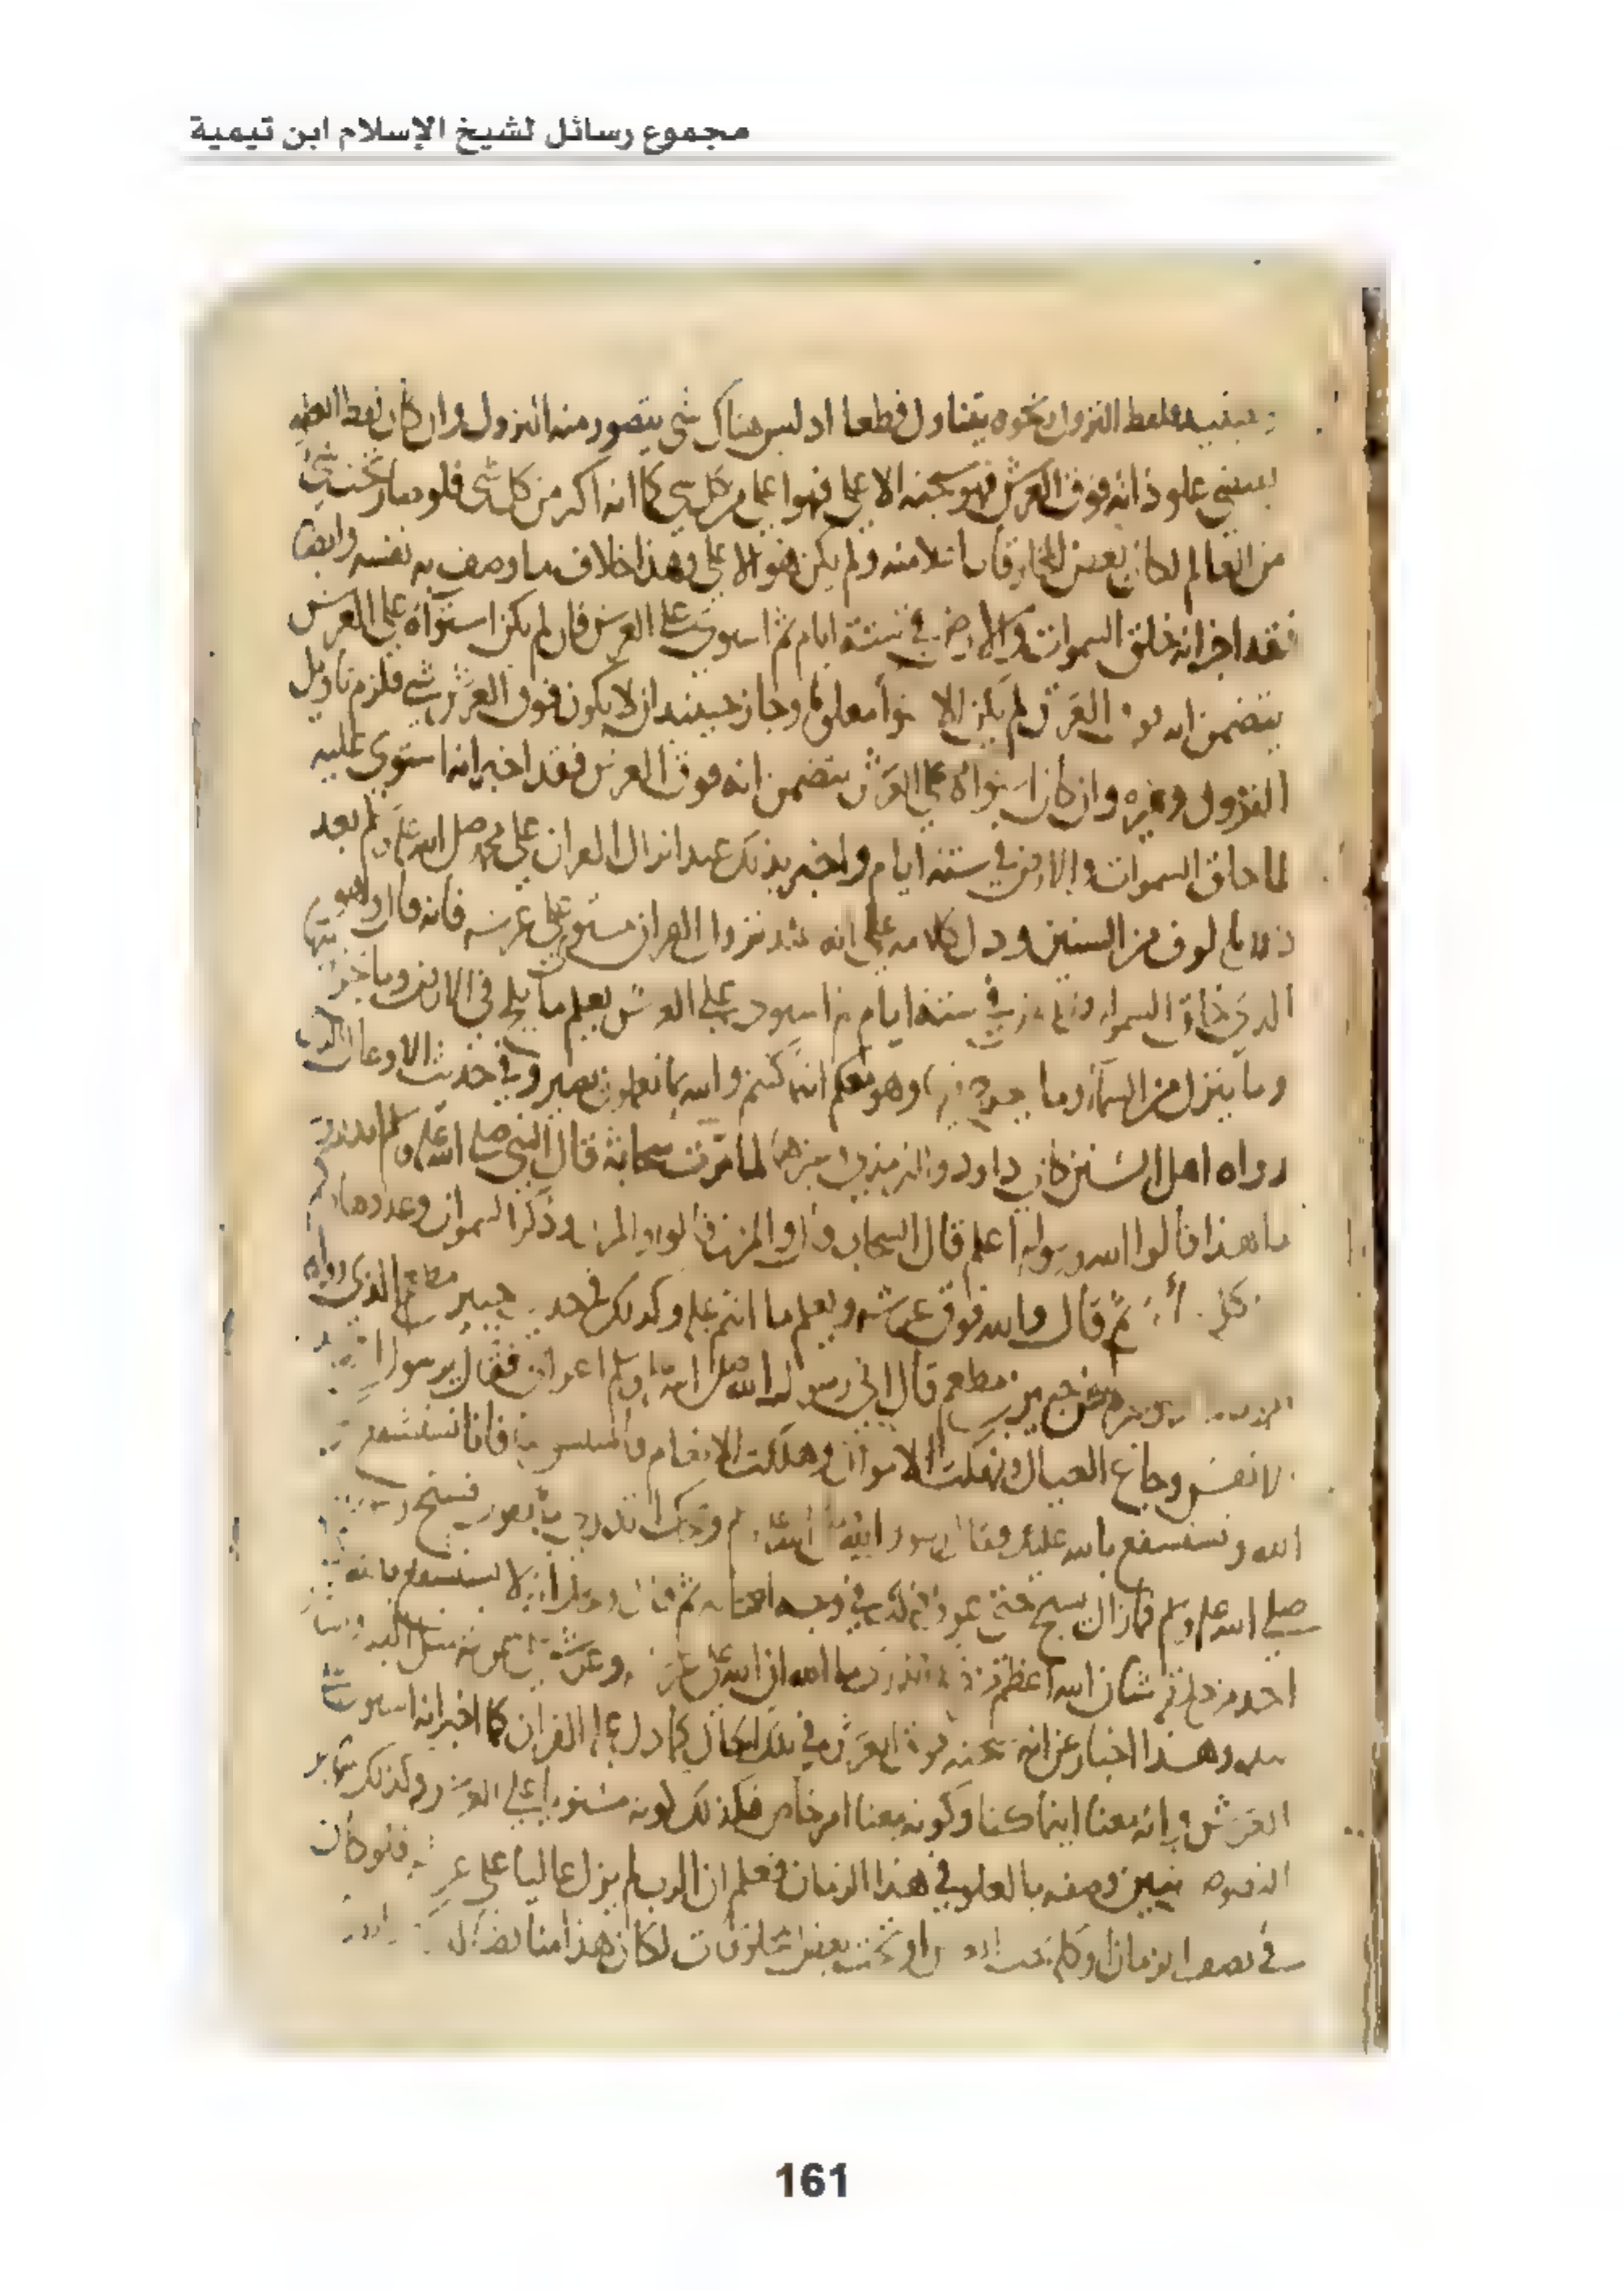 مجموع رسائل لشيخ الإسلام ابن تيمية
النزول ونحوه يتناول قطعا اد ليس هناك شي يتصور منه النزول وان كان لفظ
علو ذاته فوق العرش فهو سبحنه الاعلى فهو اعلى من كل شي كما انه اكبر من كل شي فلو صار تحت شي
من العالم لكان بعض المخلوقات اعلا منه ولم يكن هو الاعلى وهذا خلاف ما وصف به نفسه وايضا
فقد اخبر انه خلق السموات والارض في ستة ايام ثم استوى على العرش فان لم يكن استواه على العرش
يتضمن انه فوق العرش لم يكن الاستوا معلوما وجاز حينيد ان لا يكون فوق العرش شي فلزم تاويل
النزول وغيره وان كان استواه على العرش يتضمن انه فوق العرش فقد اخبر انه استوى عليه
لما خلق السموات والارض في ستة ايام واخبر بذلك عند انزال القران على محمد صلى الله عليه وسلم بعد
ذلك بالوف من السنين ودل كلامه على انه عند نزول القران مستو على عرشه فانه قال هو
الذى خلق السموات والارض في ستة ايام ثم استوى على العرش يعلم ما يلج في الارض وما يخرج منها
وما ينزل من السماء وما يعرج فيها وهو معكم اينما كنتم والله بما تعملون بصير وفي حديث الاوعال الذى
رواه اهل السنن كابي داود والترمذي وغيرهما لما مرت سحابة قال النبي صلى الله عليه وسلم اتدرون
ما هذا قالوا الله ورسوله اعلم قال السحاب قالوا والمزن وذكر السموات وعددها
ثم قال والله فوق عرشه ويعلم ما انتم عليه وكذلك في حديث جبير بن مطعم الذي رواه
عن جبير بن مطعم قال اتى رسول الله صلى الله عليه وسلم اعرابي فقال يرسول الله
الانفس وجاع العيال ونهكت الاموال وهلكت الانعام فانا نستشفع
الله ونستشفع بالله عليك فقال رسول الله صلى الله عليه وسلم ويحك اتدري ما تقول فسبح رسول
صلى الله عليه وسلم فما زال يسبح حتى عرف ذلك في وجه اصحابه ثم قال ويحك انه لا يستشفع بالله
احد من خلقه شان الله اعظم من ذلك اتدرى ما الله ان الله على عرشه وعرشه على
وهذا اخبار عن انه سبحنه فوق العرش في تلك الحال كما دل عليه القران كما اخبر انه استوى على
العرش وانه معنا اينما كنا وكونه معنا امر خاص فكذلك كونه مستويا على العرش وكذلك ساير
النصوص تبين وصفه بالعلو في هذا الزمان فعلم ان الرب لم يزل عاليا على عرشه فلو كان
في نصف الزمان او كله تحت العرش او تحت بعض المخلوقات لكان هذا مناقضا
161